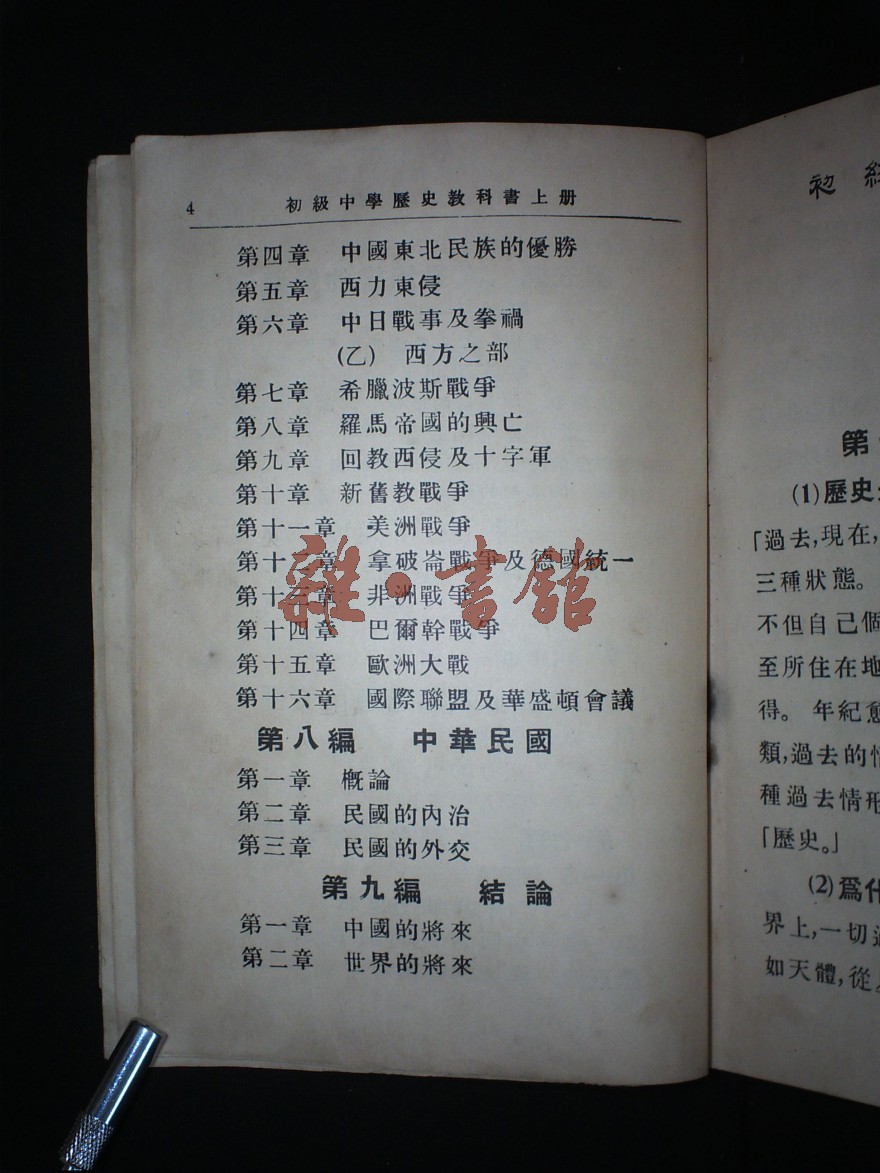 4 初級中學歷史教科書上册
第四章 中國東北民族的優勝
第五章 西力東侵
第六章 中日戰事及拳禍
(乙) 西方之部
第七章 希臘波斯戰爭
第八章 羅馬帝國的興亡
第九章 回教西侵及十字軍
第十章 新舊教戰爭
第十一章 美洲戰爭
第十二章 拿破崙戰爭及德國統一
第十三章 非洲戰爭
第十四章 巴爾幹戰爭
第十五章 歐洲大戰
第十六章 國際聯盟及華盛頓會議
第八編 中華民國
第一章 概論
第二章 民國的內治
第三章 民國的外交
第九編 結論
第一章 中國的將來
第二章 世界的將來
雜·書館
初
第
(1)歷史
「過去,現在,
三種狀態。
不但自己個
至所住在地
得。 年紀愈
類,過去的情
種過去情形
「歷史。」
(2)爲什
界上,一切過
如天體,從